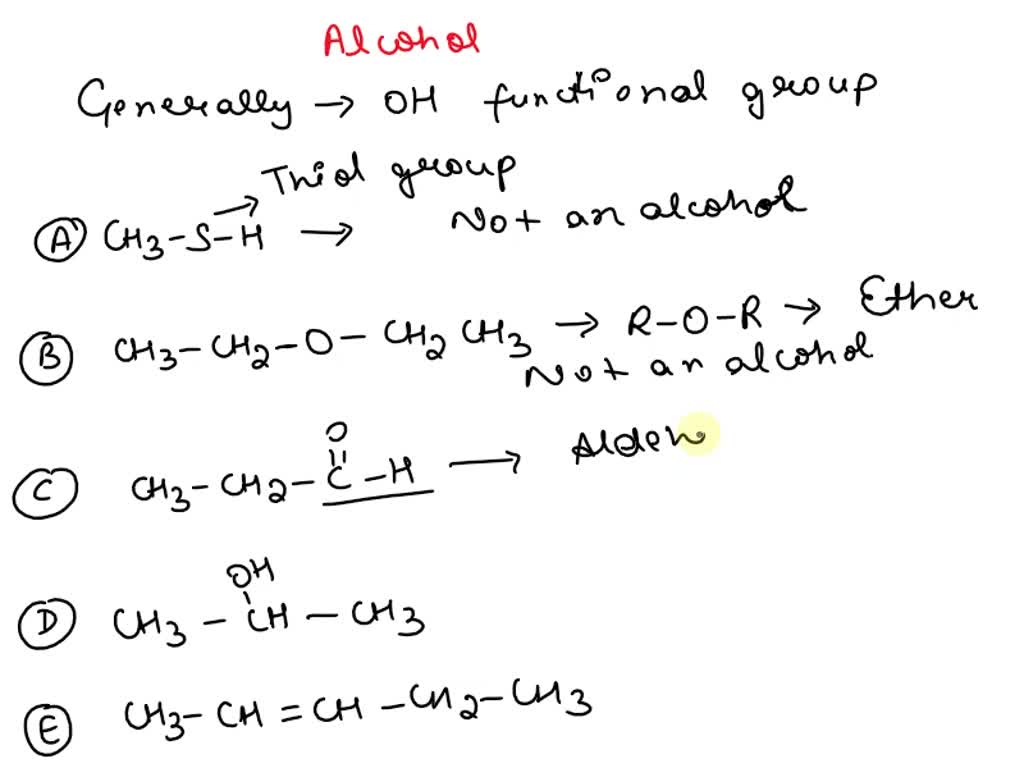 Alcohol
Generally → OH functional group
Thiol group
(A) CH3-S-H → Not an alcohol
(B) CH3-CH2-O-CH2CH3 → R-O-R → Ether
Not an alcohol
O
(C) CH3-CH2-C-H → Aldeh
OH
(D) CH3-CH-CH3
(E) CH3-CH=CH-CH2-CH3